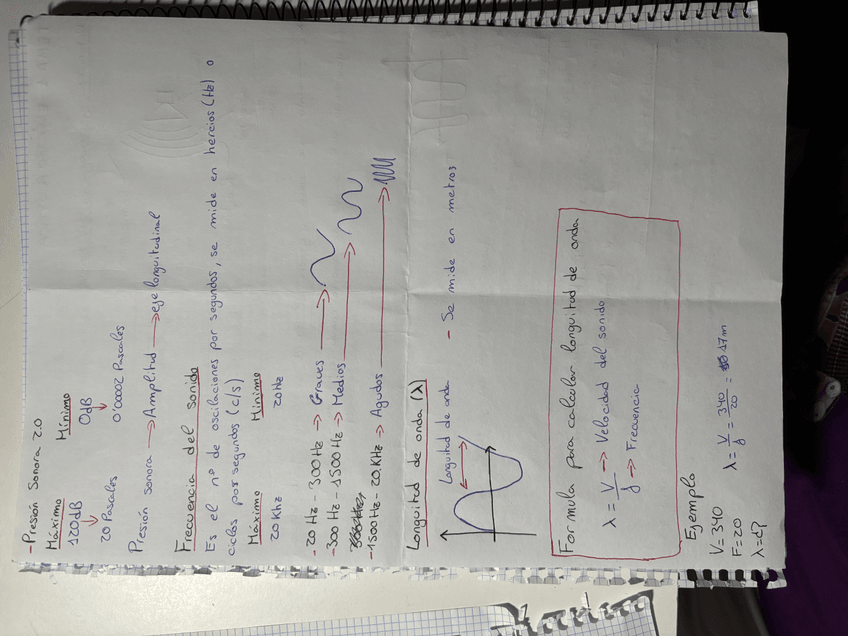 - Presión Sonora 2.0
Máximo Mínimo
120dB 0dB
20 Pascales 0'00002 Pascales
Presión sonora → Amplitud → eje longuitudinal
Frecuencia del sonido
Es el nº de oscilaciones por segundos, se mide en hercios (Hz) o
ciclos por segundos (c/s)
Máximo Mínimo
20 Khz 20Hz
- 20 Hz - 300 Hz → Graves →
- 300 Hz - 1500 Hz → Medios →
- 1500 Hz - 20 KHz → Agudos →
Longuitud de onda (λ)
Longuitud de onda - Se mide en metros
Formula para calcular longuitud de onda
λ = V/f → Velocidad del sonido
→ Frecuencia
Ejemplo
V = 340
F = 20 λ = V/f = 340/20 = 17m
λ = ¿?